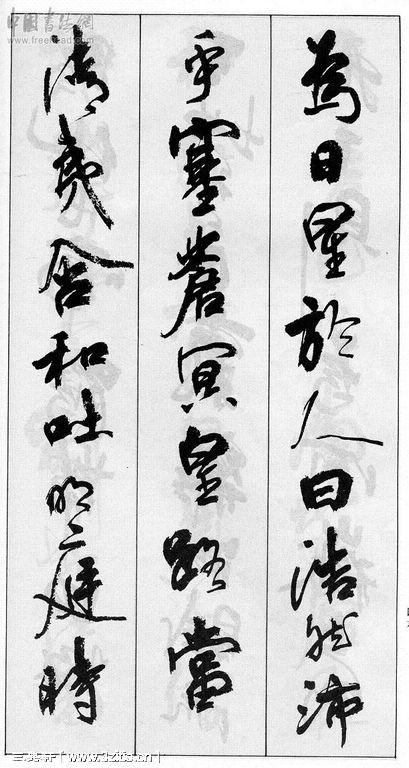 為日星於人曰浩然沛
乎塞蒼冥皇路當
清夷含和吐明庭時
中国書法網
www.freehead.com
三艺轩 | www.1zjbs.cn |